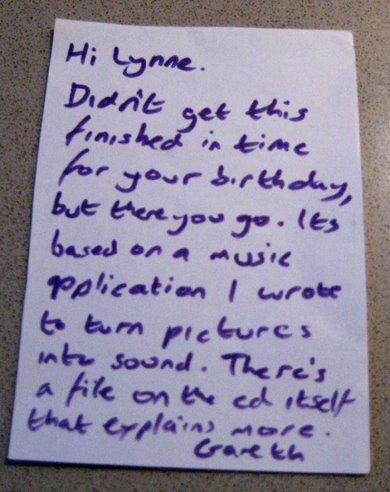 Hi Lynne.
Didn't get this
finished in time
for your birthday,
but there you go. Its
based on a music
application I wrote
to turn pictures
into sound. There's
a file on the cd itself
that explains more.
Gareth